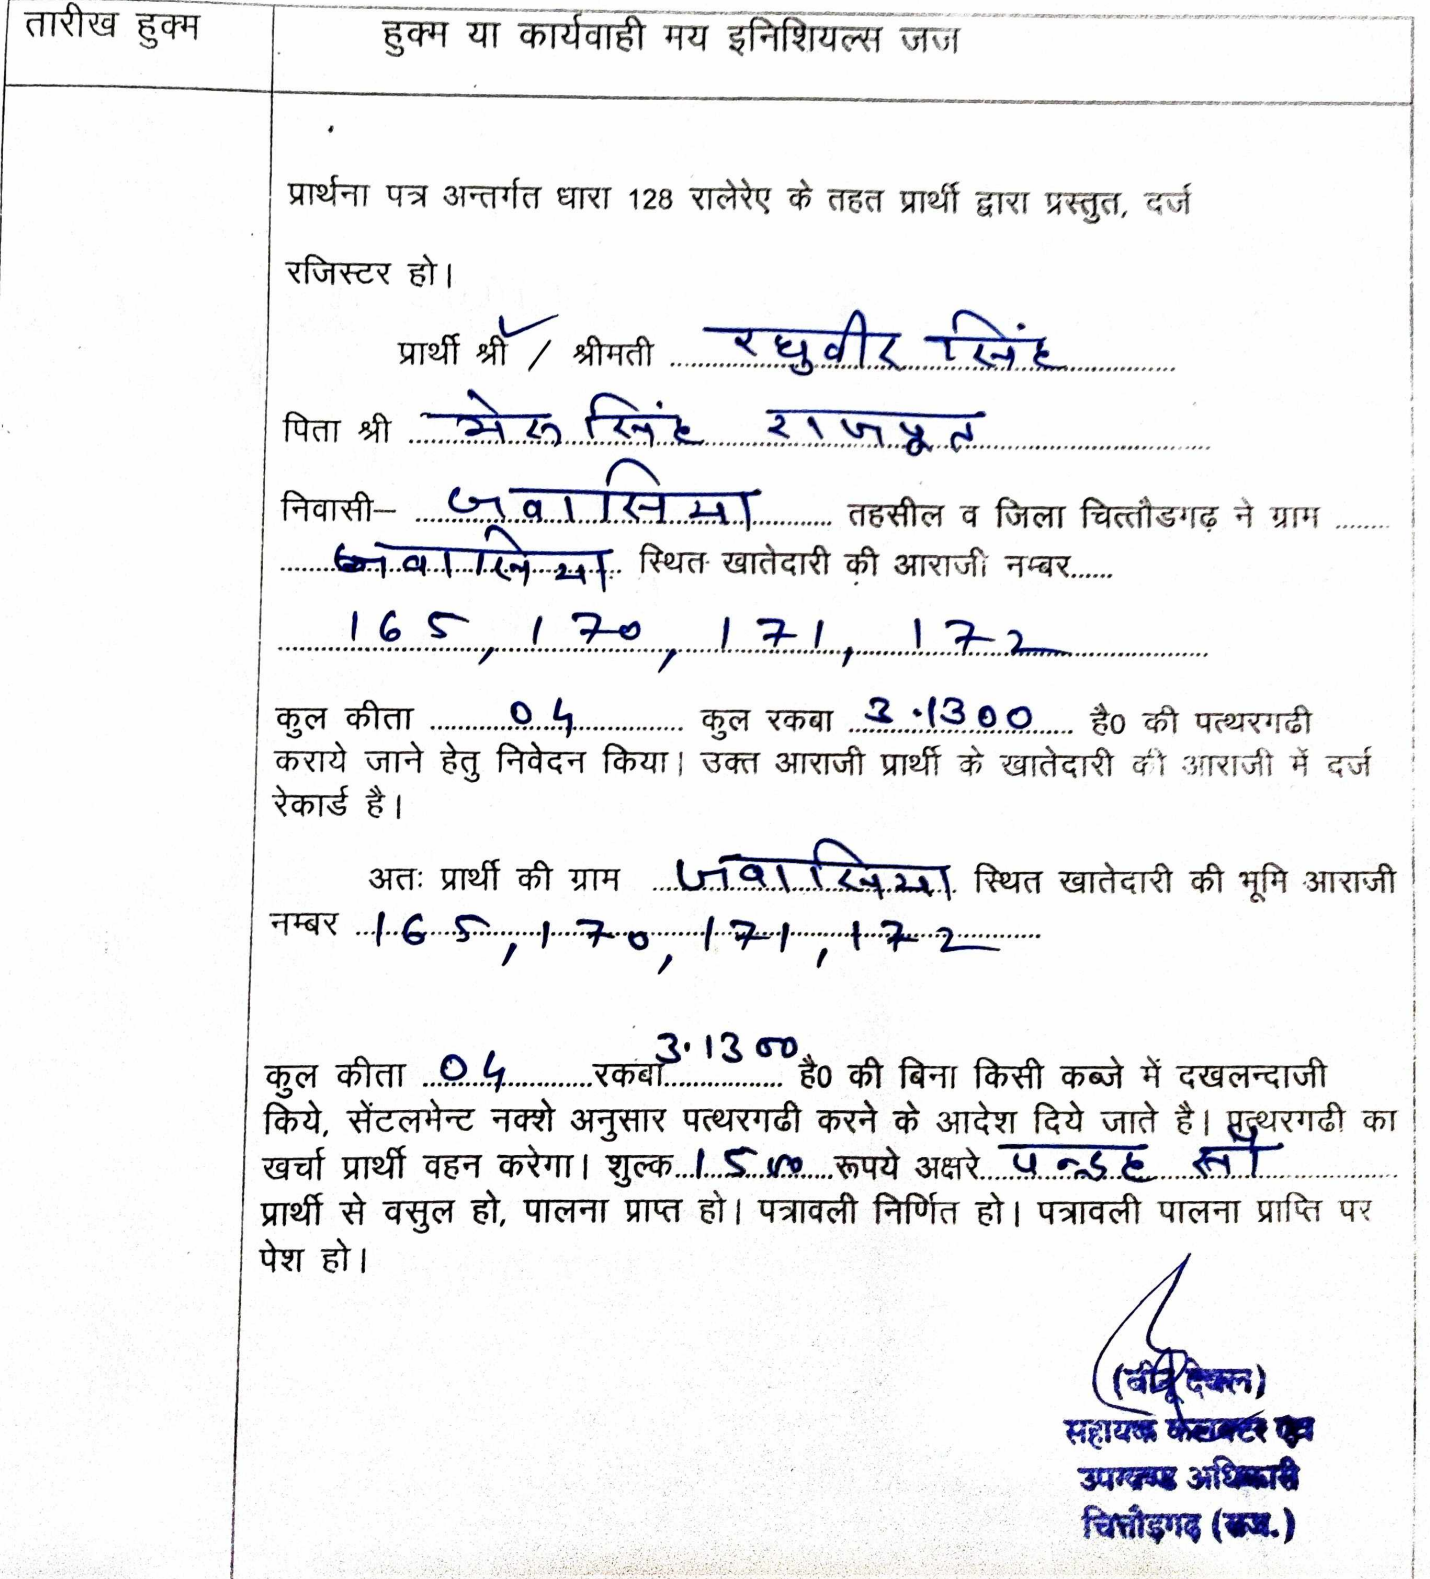 तारीख हुक्म
हुक्म या कार्यवाही मय इनिशियल्स जज
प्रार्थना पत्र अन्तर्गत धारा 128 रालेरेए के तहत प्रार्थी द्वारा प्रस्तुत, दर्ज
रजिस्टर हो।
प्रार्थी श्री / श्रीमती रघुवीर सिंह
पिता श्री भेरू सिंह राजपूत
निवासी– जवासिया तहसील व जिला चित्तौडगढ़ ने ग्राम
जवासिया स्थित खातेदारी की आराजी नम्बर
165, 170, 171, 172
कुल कीता 04 कुल रकबा 3.1300 है0 की पत्थरगढी
कराये जाने हेतु निवेदन किया। उक्त आराजी प्रार्थी के खातेदारी की आराजी में दर्ज
रेकार्ड है।
अतः प्रार्थी की ग्राम जवासिया स्थित खातेदारी की भूमि आराजी
नम्बर 165, 170, 171, 172
कुल कीता 04 रकबा 3.1300 है0 की बिना किसी कब्जे में दखलन्दाजी
किये, सेंटलमेन्ट नक्शे अनुसार पत्थरगढी करने के आदेश दिये जाते है। पत्थरगढी का
खर्चा प्रार्थी वहन करेगा। शुल्क 1500 रूपये अक्षरे पन्द्रह सौ
प्रार्थी से वसुल हो, पालना प्राप्त हो। पत्रावली निर्णित हो। पत्रावली पालना प्राप्ति पर
पेश हो।
सहायक कलक्टर एवं
उपखण्ड अधिकारी
चित्तौड़गढ़ (राज.)